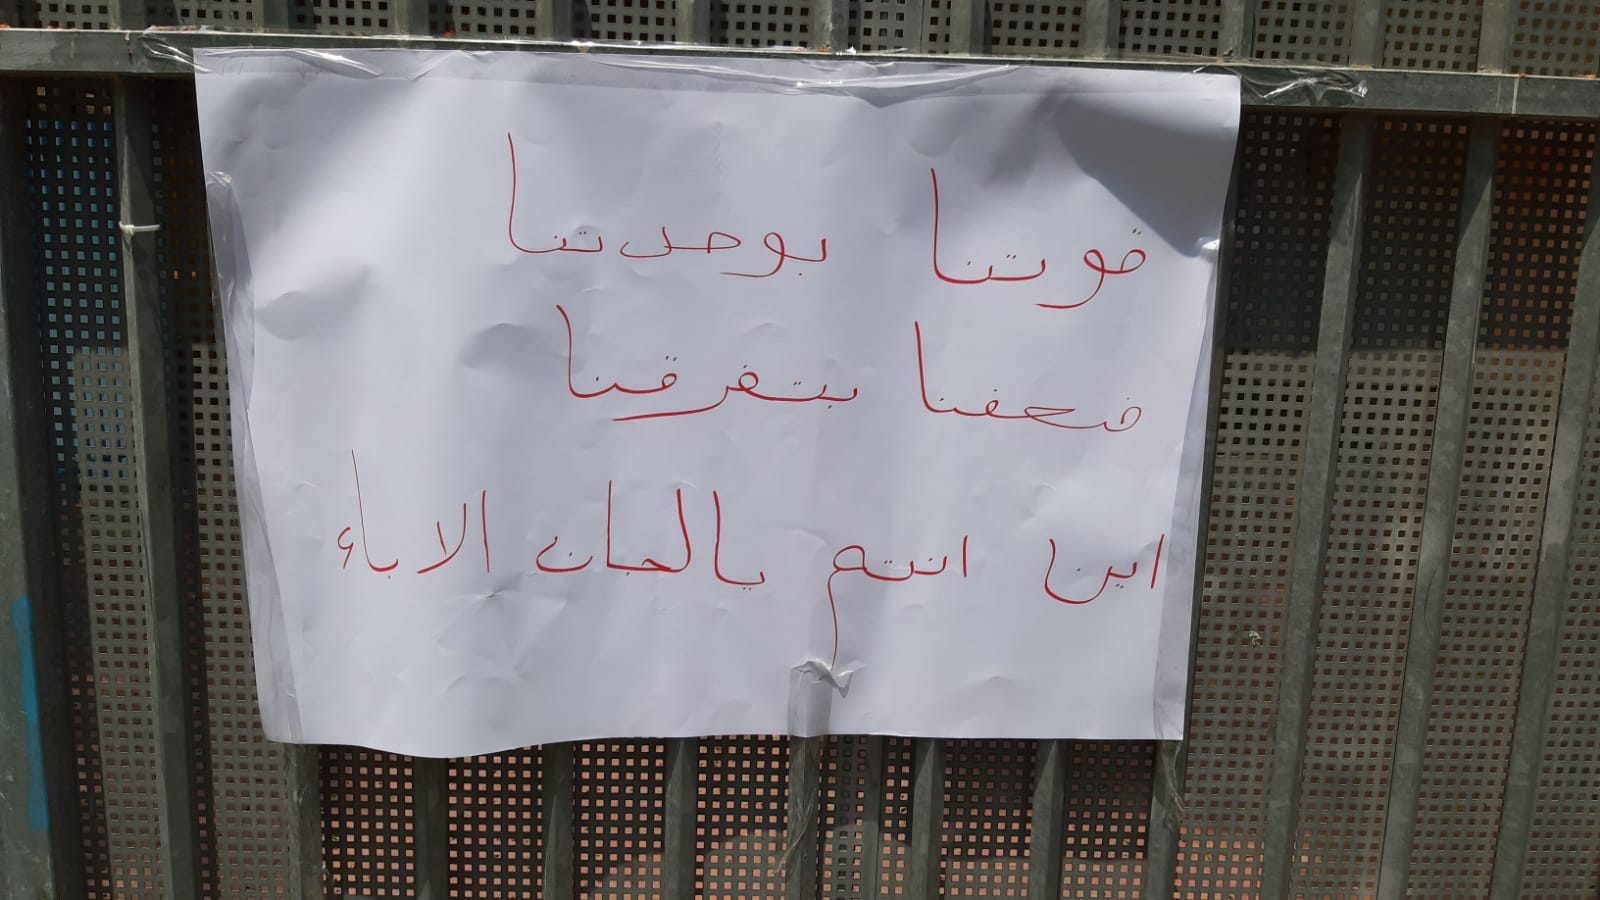 قوتنا بوحدتنا
ضعفنا بتفرقنا
اين انتم يا لجان الاباء